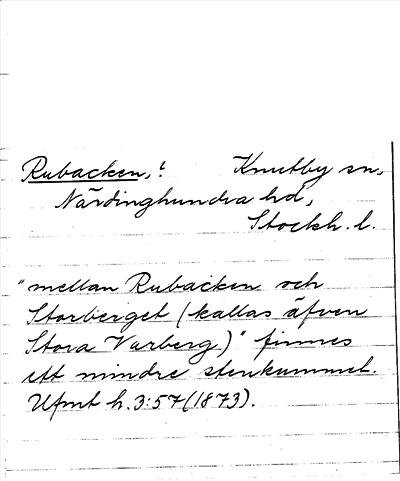 Rubacken, ! Knutby sn,
Närdinghundra hd,
Stockh. l.
"mellan Rubacken och
Storberget (kallas äfven
Stora Varberg)" finnes
ett mindre stenkummel.
Ufmt h. 3:57 (1873).